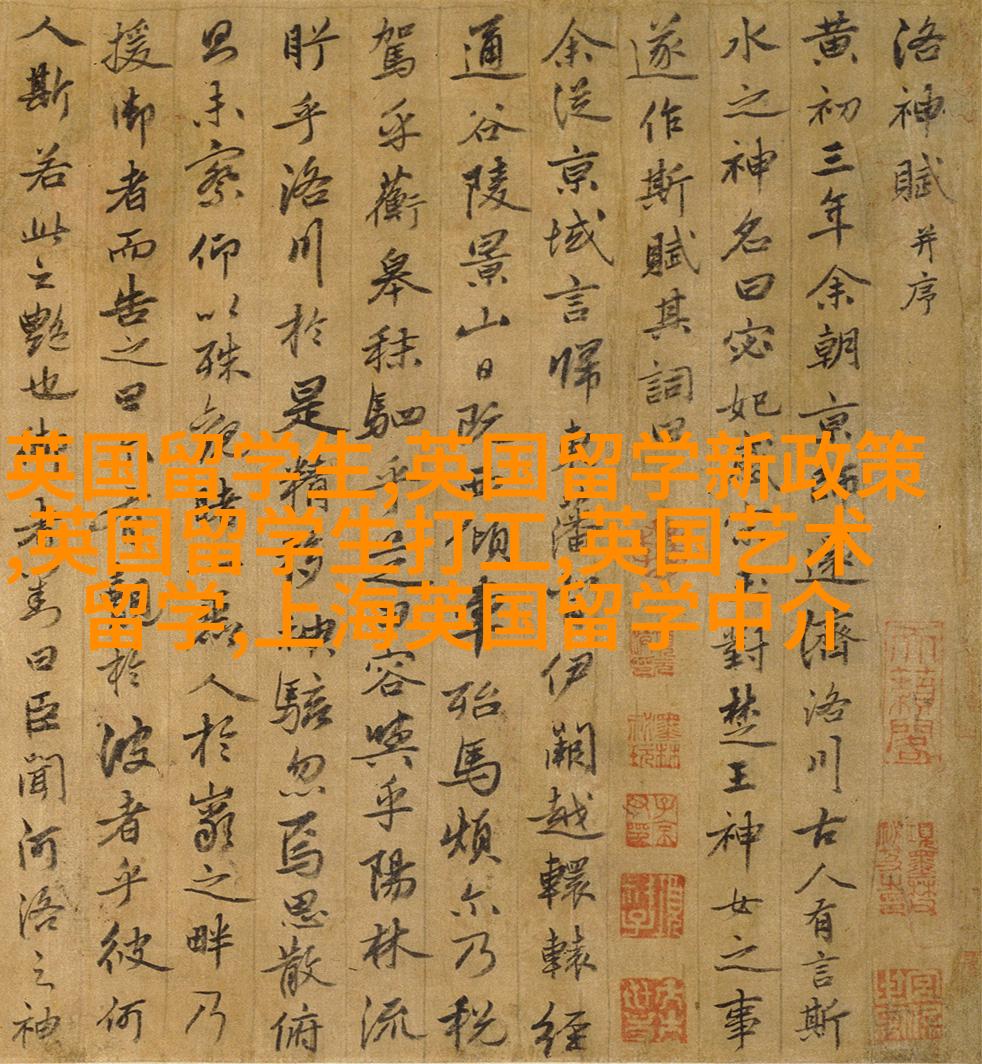 洛神賦 并序
黃初三年余朝京師還濟洛川古人有言斯
水之神名曰宓妃感宋玉對楚王神女之事
遂作斯賦其詞曰
余從京域言歸東藩背伊闕越轘轅經
通谷陵景山日既西傾車殆馬煩尒乃稅
駕乎蘅皋秣駟乎芝田容與乎陽林流
眄乎洛川於是精移神駭忽焉思散俯
未察仰以殊觀睹一麗人於巖之畔乃
援御者而告之曰尒有覿於彼者乎彼何
人斯若此之艷也御者對曰臣聞河洛之神
英国留学生,英国留学新政策
,英国留学生打工,英国艺术
留学,上海英国留学中介